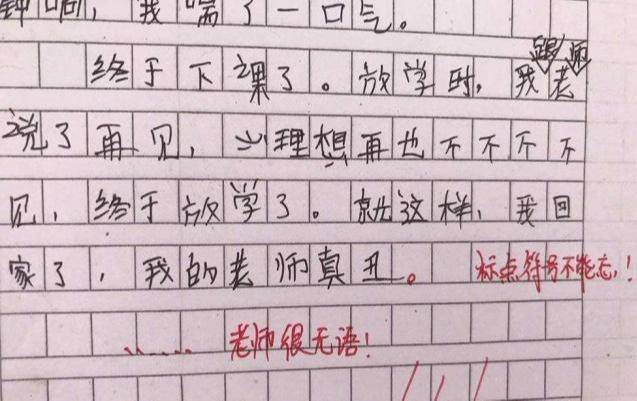 钟响，我喘了一口气。
终于下课了。放学时，我跟老师
说了再见，心理想再也不不不不
见，终于放学了。就这样，我回
家了，我的老师真丑。 标点符号不能忘！
...... 老师很无语！